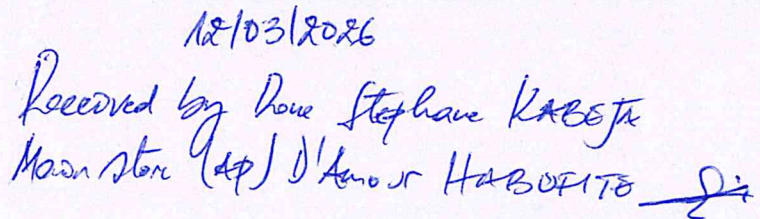 12/03/2026
Received by Stephane KABEJA
Main store (AP) D'Amour HABUFITE